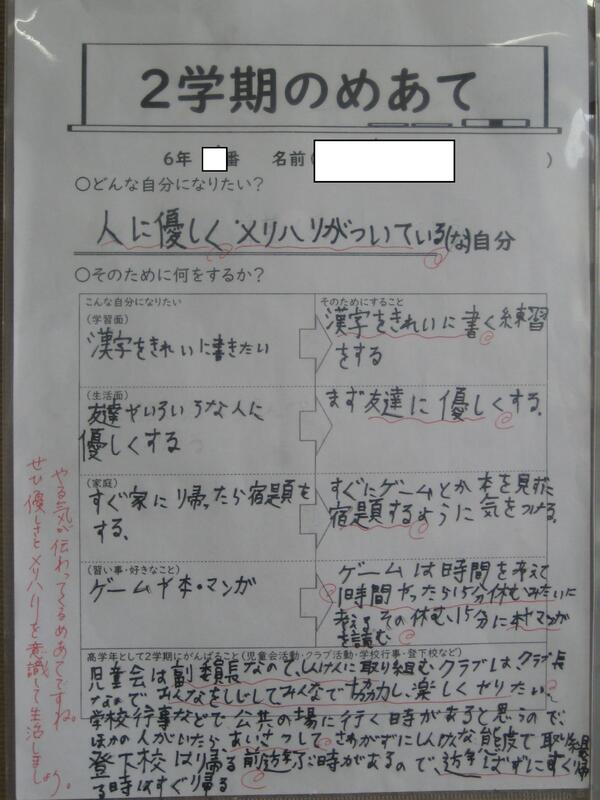 2学期のめあて
6年 番 名前( )
○どんな自分になりたい?
人に優しくメリハリがついている(な)自分
○そのために何をするか?
こんな自分になりたい
(学習面)
漢字をきれいに書きたい
そのためにすること
漢字をきれいに書く練習
をする
(生活面)
友達やいろいろな人に
優しくする
まず友達に優しくする。
(家庭)
すぐ家に帰ったら宿題を
する。
すぐにゲームとか本を見ずに
宿題するように気をつける。
(習い事・好きなこと)
ゲームや本・マンガ
ゲームは時間を考えて
1時間やったら15分休むみたいに
考える。その休む15分に本やマンガ
を読む
高学年として2学期にがんばること(児童会活動・クラブ活動・学校行事・登下校など)
児童会は副委員長なので、しんけんに取り組む。クラブは、クラブ長
なので みんなをしじしてみんなで協力し、楽しくやりたい。
学校行事などで公共の場に行く時があると思うので、
ほかの人がいたら あいさつして さわがずにしんけんな態度で取り組む
登下校は帰る前 時があるので、遊ばずにすぐ帰
る時はすぐ帰る
やる気が伝わってくるめあてですね。
ぜひ優しさとメリハリを意識して生活しましょう。